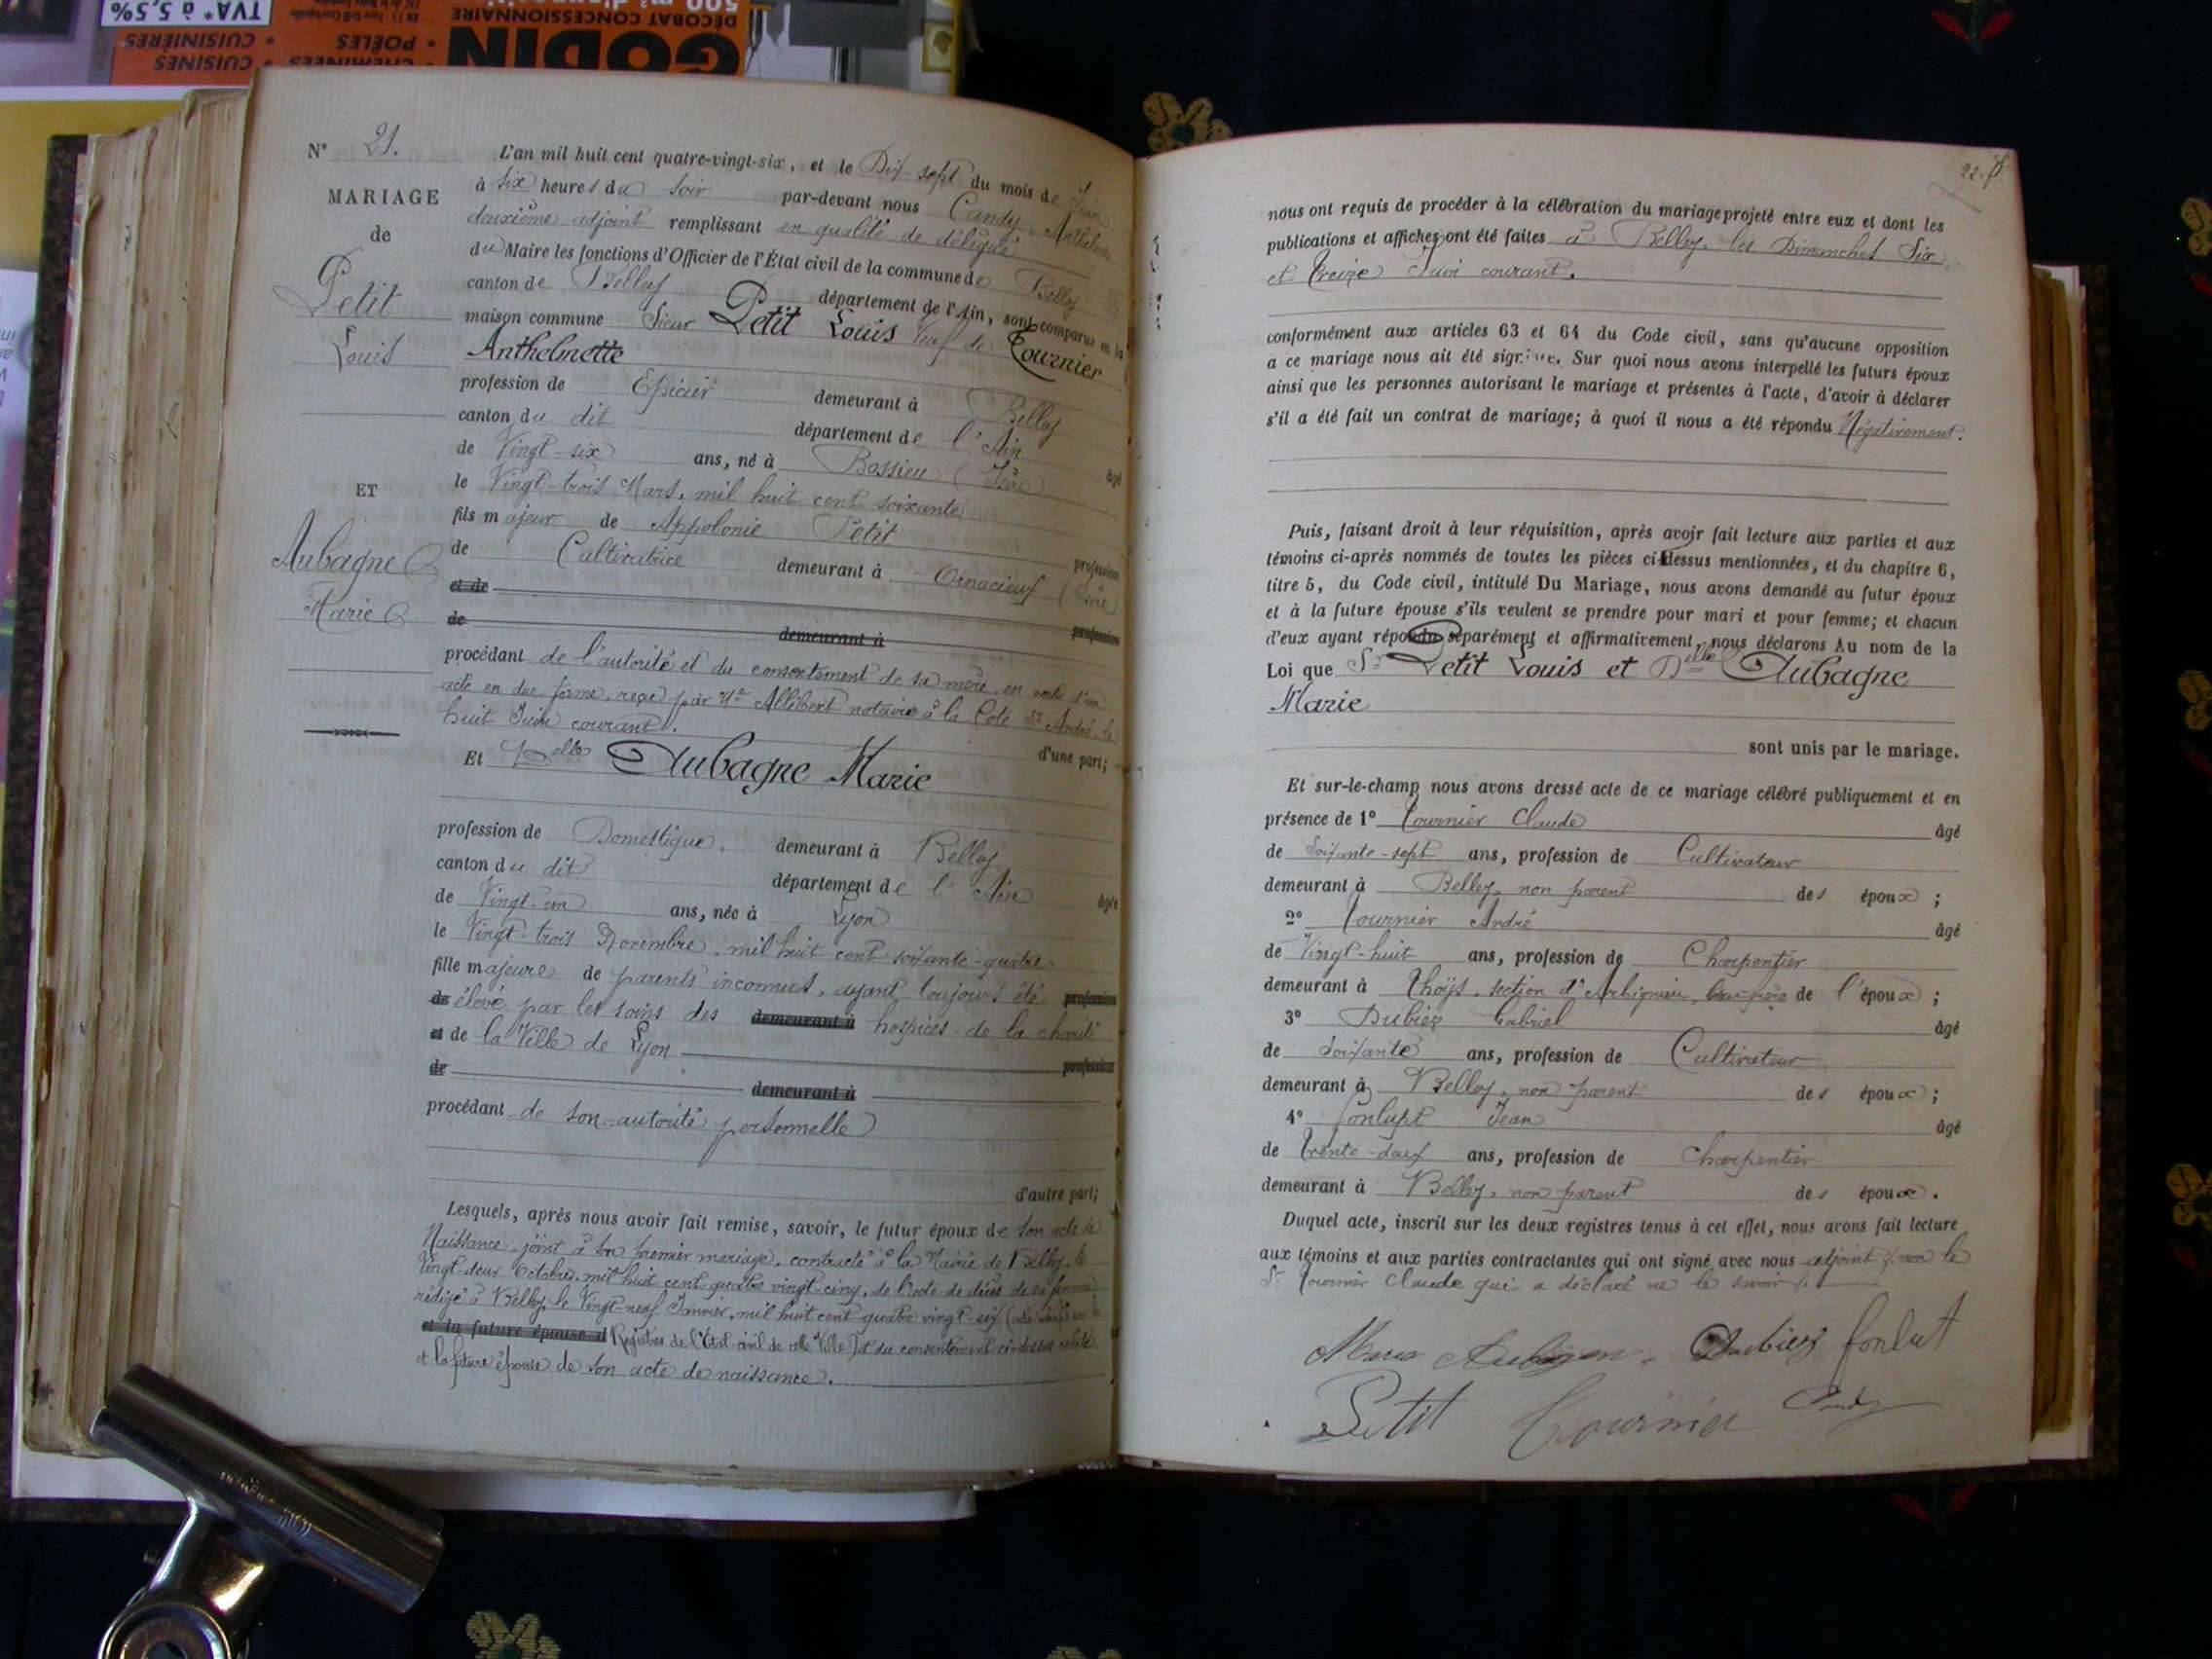 TVA* à 5,5%
CUISINES •
CUISINIÈRES •
CHEMINÉES •
POÊLES •
GODIN
DÉCOBAT CONCESSIONNAIRE
N° 21.
MARIAGE
de
Petit
Louis
ET
Aubagne
Marie
L'an mil huit cent quatre-vingt-six, et le Dix-sept du mois de Juin
à six heures du soir par-devant nous Candy Anthelme
deuxième adjoint remplissant en qualité de délégué
du Maire les fonctions d'Officier de l'État civil de la commune de Belley
canton de Belley département de l'Ain, sont comparus en la
maison commune Sieur Petit Louis Veuf de Tournier
Anthelmette
profession de Epicier demeurant à Belley
canton du dit département de l'Ain âgé
de Vingt-six ans, né à Bossieu (Isère)
le Vingt-trois Mars, mil huit cent soixante
fils majeur de Appolonie Petit profession
de Cultivatrice demeurant à Ornacieux (Isère)
et de
de demeurant à profession
procédant de l'autorité et du consentement de sa mère, en vertu d'un
acte en due forme, reçu par Mᵉ Allibert notaire à la Cote St André, le
huit Juin courant. d'une part;
Et Delle Aubagne Marie
profession de Domestique, demeurant à Belley
canton du dit département de l'Ain âgée
de Vingt-un ans, née à Lyon
le Vingt-trois Novembre, mil huit cent soixante-quatre
fille majeure de parents inconnus, ayant toujours été profession
de élevé par les soins des demeurant à hospices de la charité
et de la Ville de Lyon profession
de demeurant à
procédant de son autorité personnelle
d'autre part;
Lesquels, après nous avoir fait remise, savoir, le futur époux de son acte de
Naissance joint à son premier mariage, contracté à la Mairie de Belley, le
Vingt-deux Octobre, mil huit cent quatre vingt-cinq, de l'acte de décès de sa femme
rédigé à Belley, le Vingt-neuf Janvier, mil huit cent quatre vingt-six
et la future épouse d Registres de l'Etat-civil de cette Ville) et du consentement ci-dessus relaté,
et la future épouse de son acte de naissance.
22.
nous ont requis de procéder à la célébration du mariage projeté entre eux et dont les
publications et affiches ont été faites à Belley, les Dimanches Six
et Treize Juin courant.
conformément aux articles 63 et 64 du Code civil, sans qu'aucune opposition
a ce mariage nous ait été signifiée. Sur quoi nous avons interpellé les futurs époux
ainsi que les personnes autorisant le mariage et présentes à l'acte, d'avoir à déclarer
s'il a été fait un contrat de mariage; à quoi il nous a été répondu Négativement.
Puis, faisant droit à leur réquisition, après avoir fait lecture aux parties et aux
témoins ci-après nommés de toutes les pièces ci-dessus mentionnées, et du chapitre 6,
titre 5, du Code civil, intitulé Du Mariage, nous avons demandé au futur époux
et à la future épouse s'ils veulent se prendre pour mari et pour femme; et chacun
d'eux ayant répondu séparément et affirmativement, nous déclarons Au nom de la
Loi que Sr Petit Louis et Delle Aubagne
Marie
sont unis par le mariage.
Et sur-le-champ nous avons dressé acte de ce mariage célébré publiquement et en
présence de 1° Tournier Claude âgé
de Soixante-sept ans, profession de Cultivateur
demeurant à Belley, non parent des époux ;
2° Tournier André âgé
de Vingt-huit ans, profession de Charpentier
demeurant à Thoÿs, section d'Arbignieu, beau-frère de l'époux ;
3° Dubiez Gabriel âgé
de Soixante ans, profession de Cultivateur
demeurant à Belley, non parent des époux ;
4° Fonlupt Jean âgé
de trente-deux ans, profession de Charpentier
demeurant à Belley, non parent des époux.
Duquel acte, inscrit sur les deux registres tenus à cet effet, nous avons fait lecture
aux témoins et aux parties contractantes qui ont signé avec nous adjoint, non le
Sr Tournier Claude qui a déclaré ne le savoir.
Marie Dubiez fonlut
Petit Tournier Candy